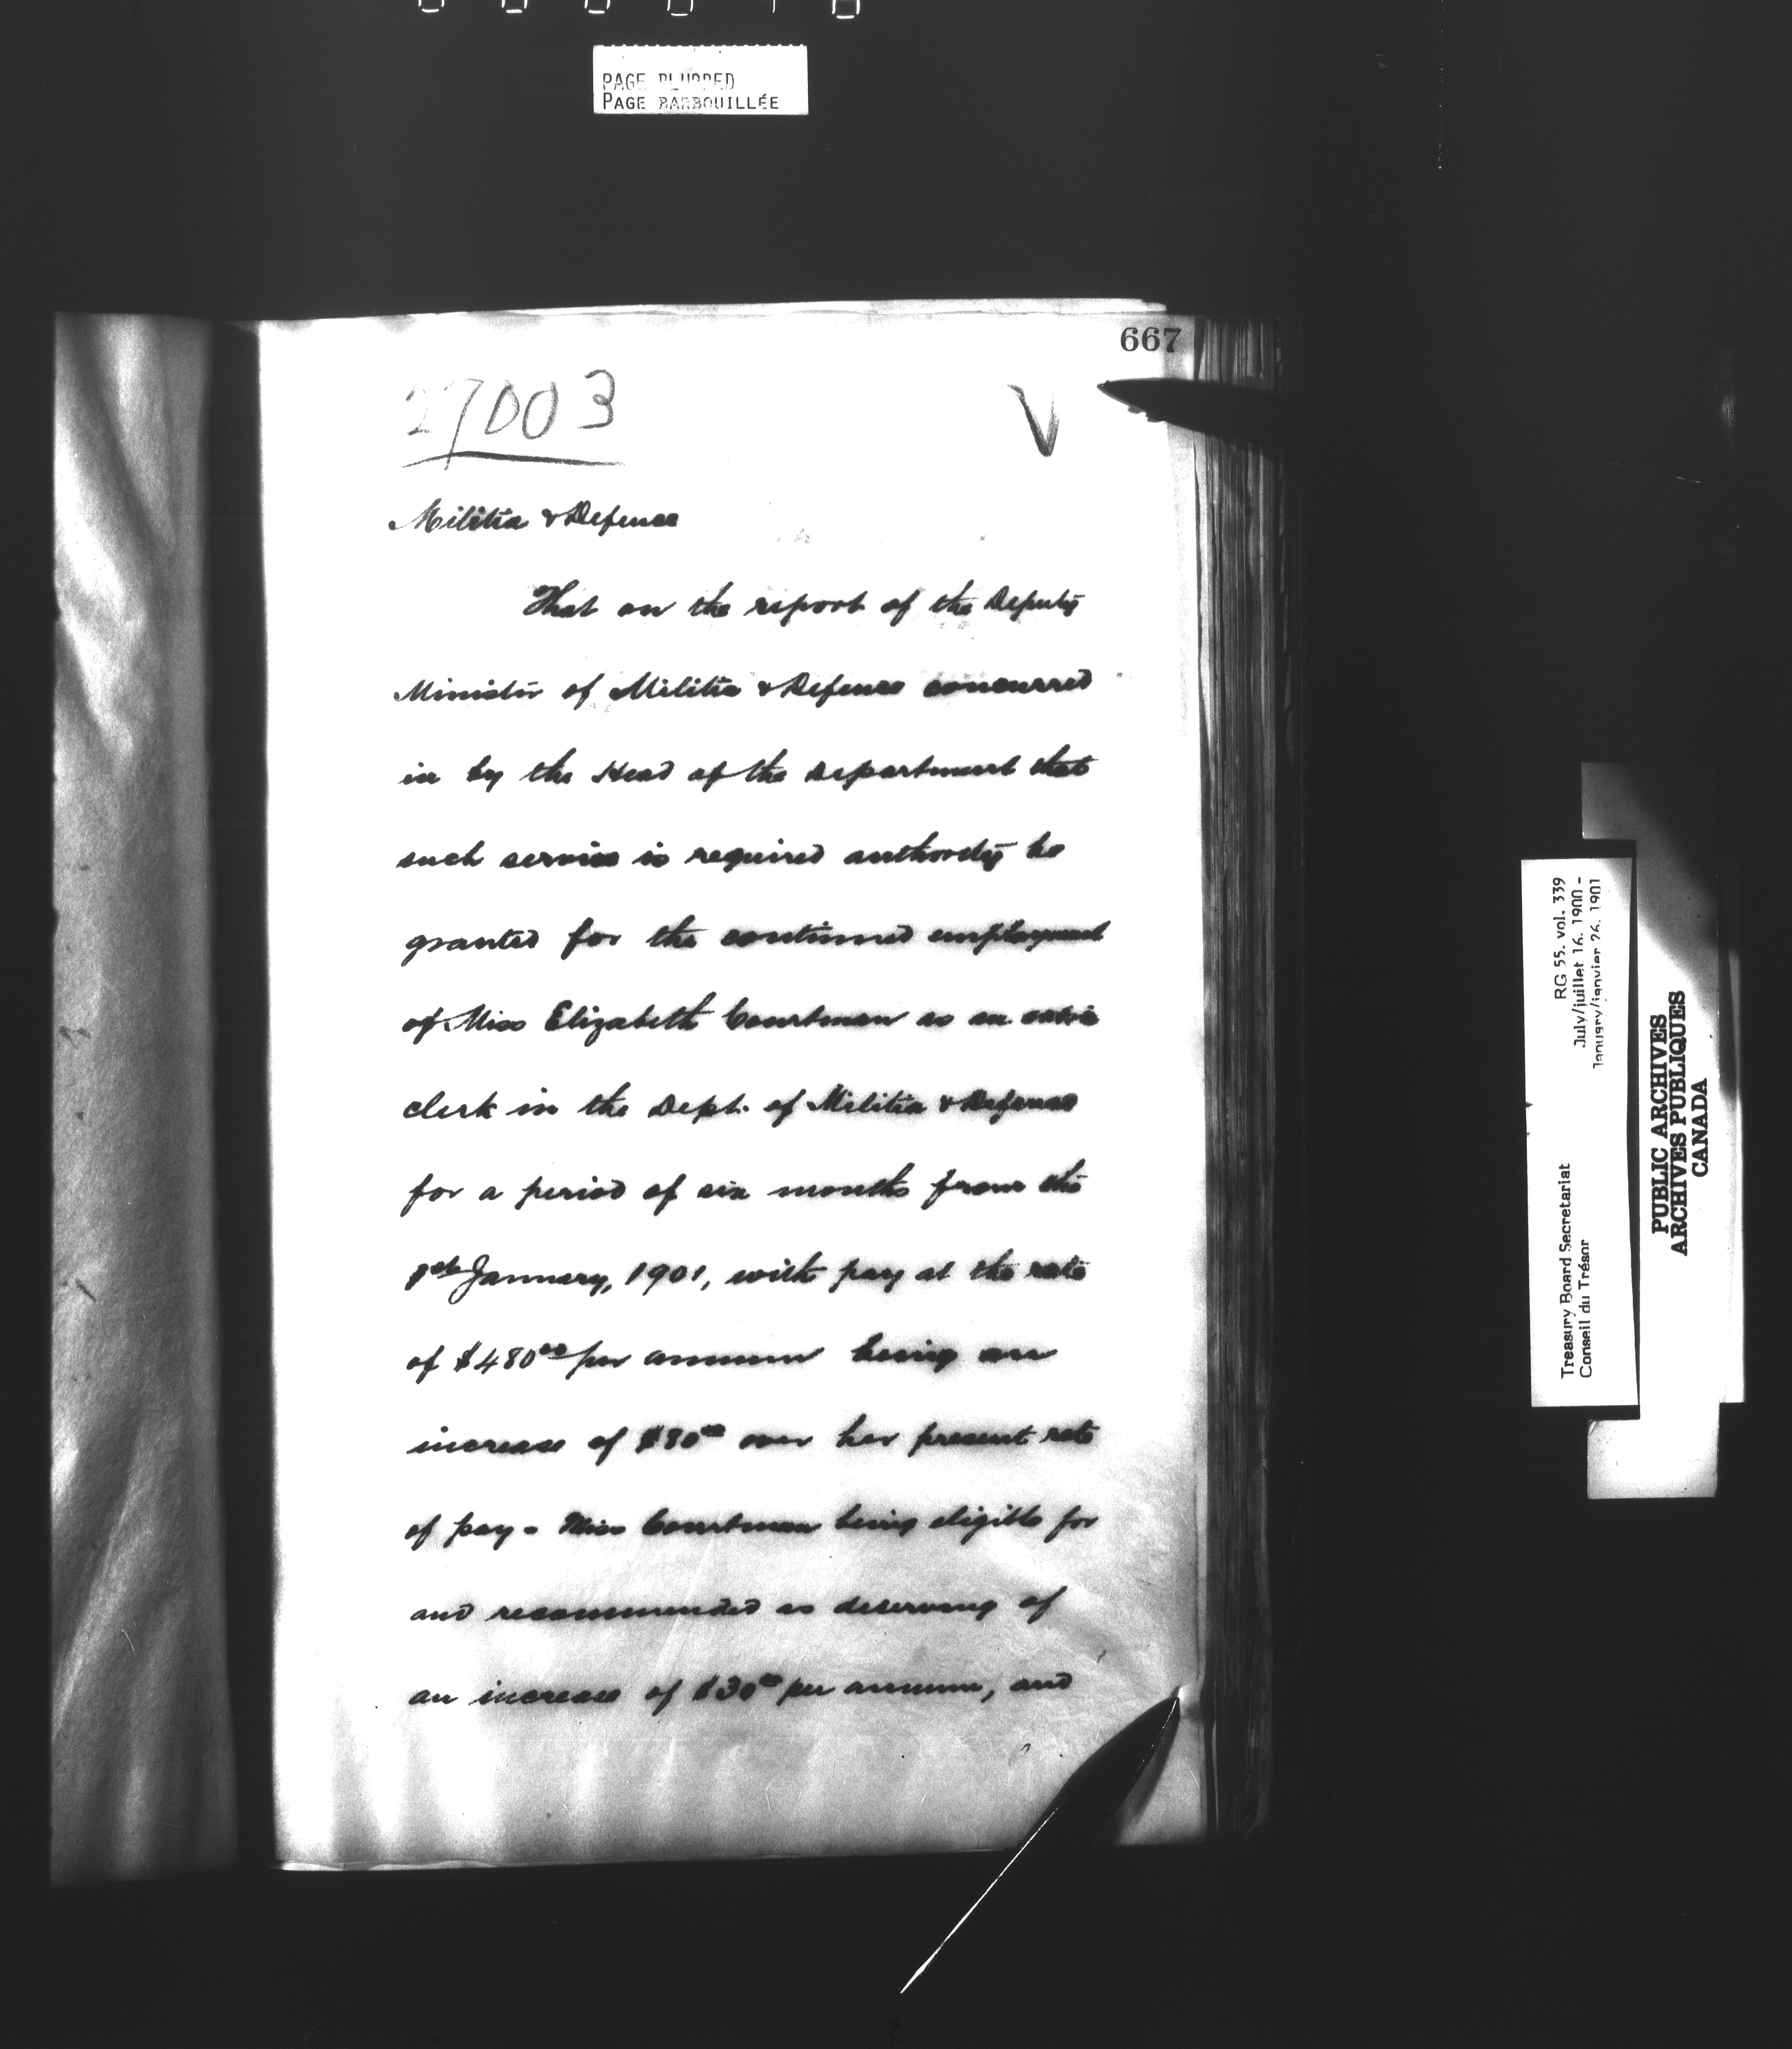 PAGE BLURRED
PAGE BARBOUILLÉE
667
27003
V
Militia & Defence
That on the report of the Deputy
Minister of Militia & Defence concurred
in by the Head of the Department that
such service is required authority be
granted for the continued employment
of Miss Elizabeth Courtman as an extra
clerk in the Dept. of Militia & Defence
for a period of six months from the
1st January, 1901, with pay at the rate
of $480⁰⁰ per annum being an
increase of $80⁰⁰ over her present rate
of pay - Miss Courtman being eligible for
and recommended as deserving of
an increase of $30⁰⁰ per annum, and
Treasury Board Secretariat RG 55, vol. 339
Conseil du Trésor July/juillet 16, 1900 -
January/janvier 26, 1901
PUBLIC ARCHIVES
ARCHIVES PUBLIQUES
CANADA